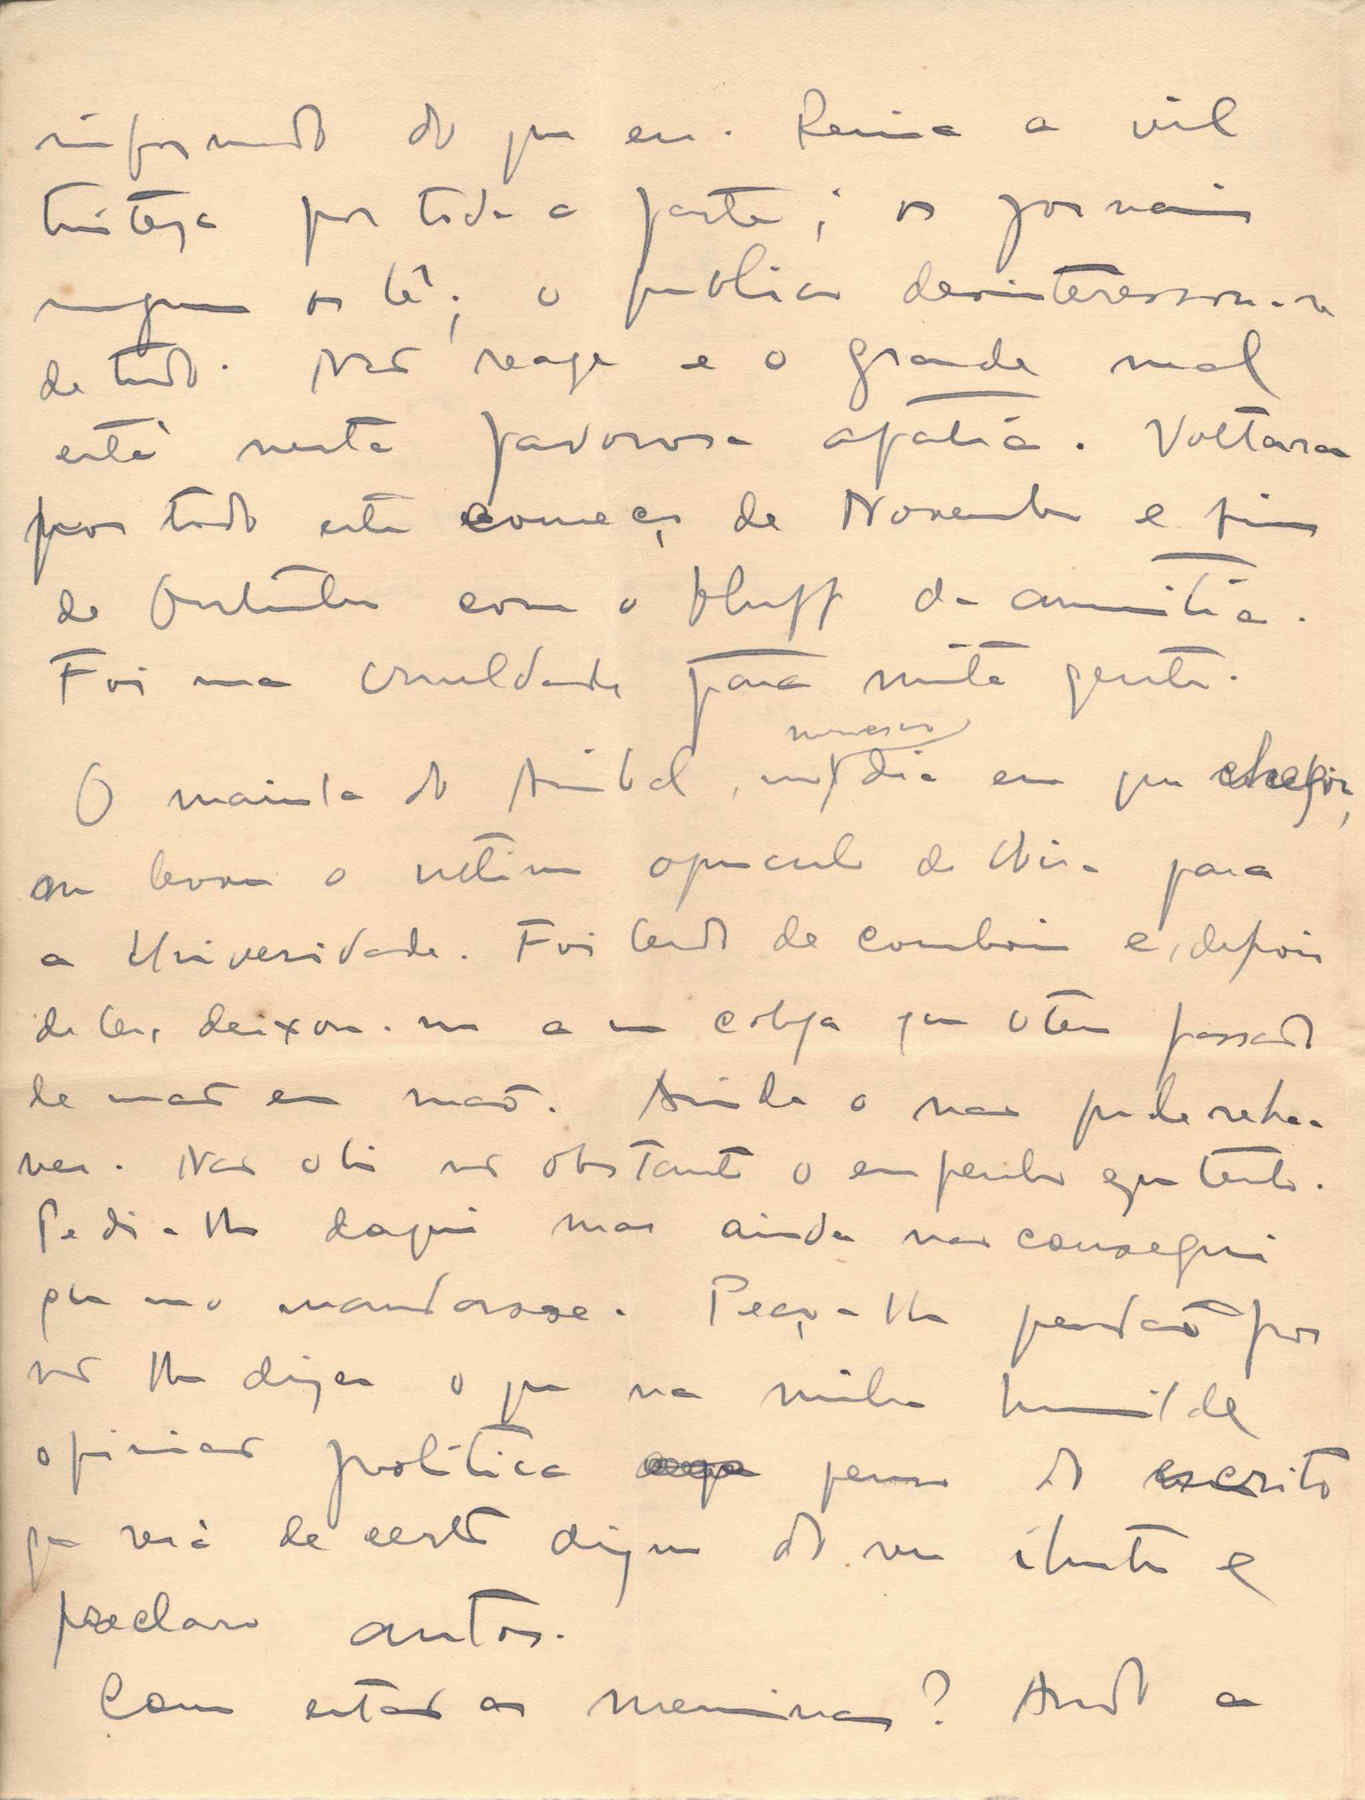 informado do que eu. Reina a vil
tristeza por toda a parte; os jornais
ninguem os lê; o publico desinteressou-se
de tudo. Não reage e o grande mal
está nesta pavorosa apatia. Voltaram
por todo este começo de Novembro e fim
de Outubro com o bluff da amnistia.
Foi uma crueldade para muita gente.
O do Anibal, no mesmo dia em que chegou,
me levou o ultimo opusculo de para
a Universidade. Foi lendo de comboio e, depois
de ler, deixou-me a um colega que o tem passado
de mão em mão. Ainda o não pude reha-
ver. Não o li não obstante o empenho que tenho.
Pedi-lho daqui mas ainda não consegui
que mo mandasse. Peço-lhe perdão por
não lhe dizer o que na minha humilde
opinião politica penso do escrito
que será de certo digno do seu ilustre e
preclaro autor.
Como estão as meninas? Ando a